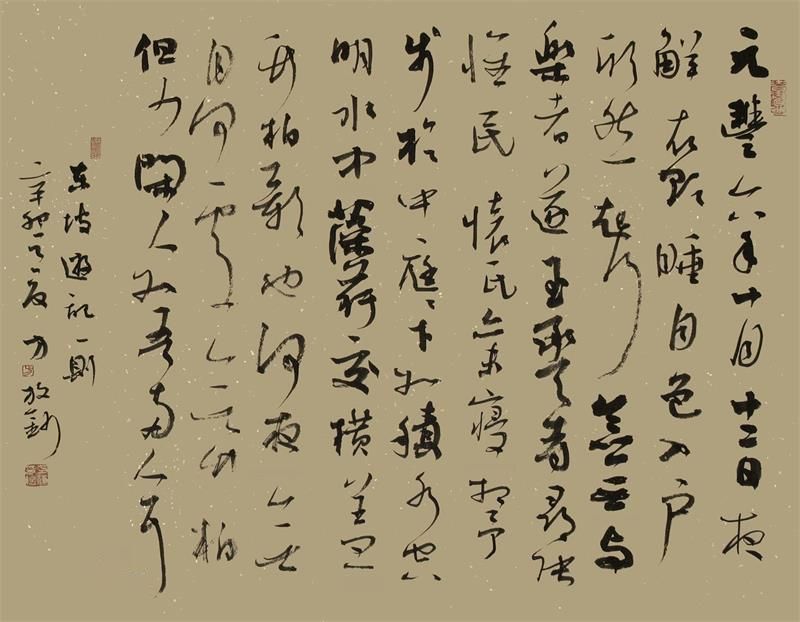 元豐六年十月十二日夜
解衣欲睡月色入户
欣然起行念無與
樂者遂至承天寺尋張
懷民懷民亦未寢相與
步於中庭庭下如積水空
明水中藻荇交橫蓋
竹柏影也何夜無
月何處無竹柏
但少閑人如吾兩人耳
東坡遊記一則
辛卯夏方放